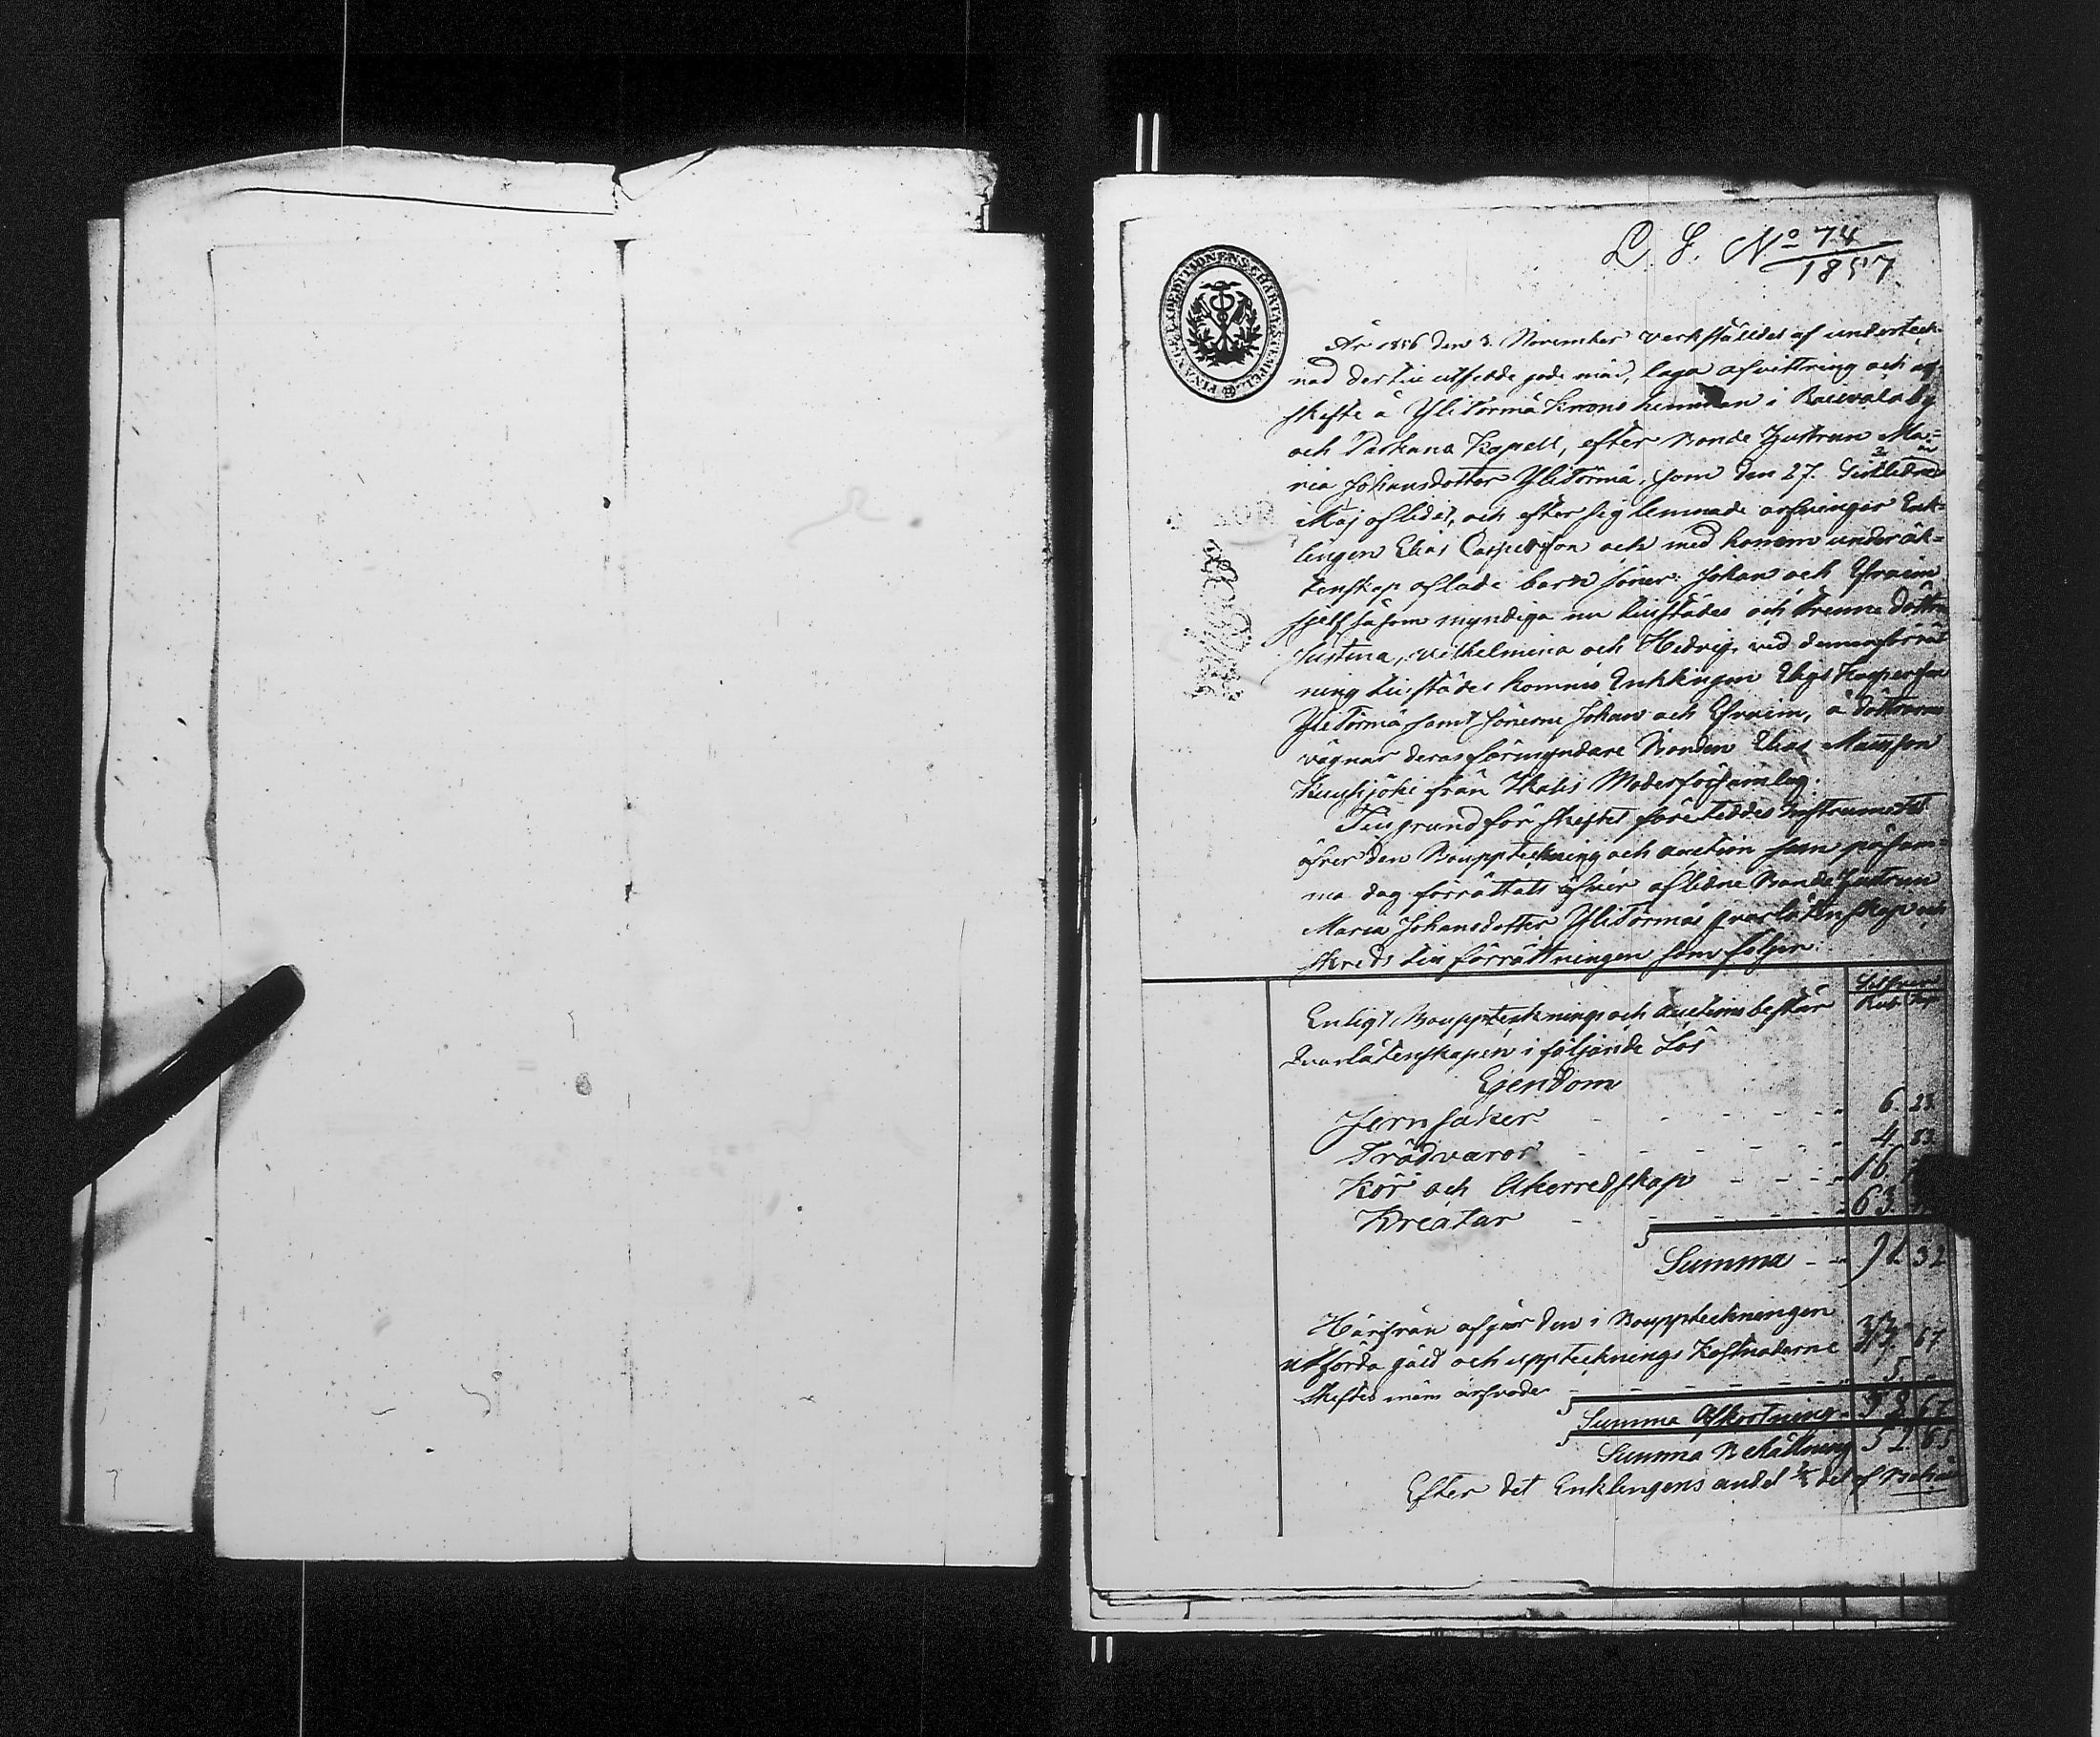 L. G. No 74
1857
FINANCE EXPEDITIONENS CHARTÆ STEMPEL
År 1856 den 3. November verkställdes af underteck-
nad dertill utsedde gode män, laga afvittring och arf-
skifte å Ylitörmä Krono hemman i by
och Parkano Kapell, efter Bonde Hustrun Ma-
ria Johansdotter Ylitörmä, som den 27. sistledne
Maj aflidit, och efter sig lemnade arfvingar Enk-
lingen Elias Caspersson och med honom under äk-
tenskap aflade barn söner: Johan och Efraim
sjelf såsom myndiga nu tillstädes och trenne döttrar
Justina, Vilhelmina och Hedvig, ved denna förrätt
ning tillstädes komne Enklingen Elias Kaspersson
Ylitörmä samt sönerne Johan och Efraim, å döttrarnes
vägnar deras förmyndare Bonden Elias Mattsson
Kuusijoki från Ikalis Moderförsamling.
Till grund för skiftet företeddes Instrumentet
öfver den Bouppteckning och auction som på sam-
ma dag förrättats öfver aflidne Bonde Hustrun
Maria Johansdotter Ylitörmäs qvarlåtenskap och
skreds till förrättningen som följer:
Silfver
Rub. Kop
Enligt Bouppteckning och auction består
Qvarlåtenskapen i följande Lös
Egendom
Jernsaker 6. 23.
Trädvaror 4. 53.
Kör och Åkerredskap 16.
Kreatur 63.
Summa 91. 32
Härifrån afgår den i Bouppteckningen
utförda gäld och upptecknings Kostnaderne 33. 67
Skiftes mäns arfvode 5
Summa Afkortning 38 67
Summa Behållning 52. 65
Efter det Enklingens andel del af Behå